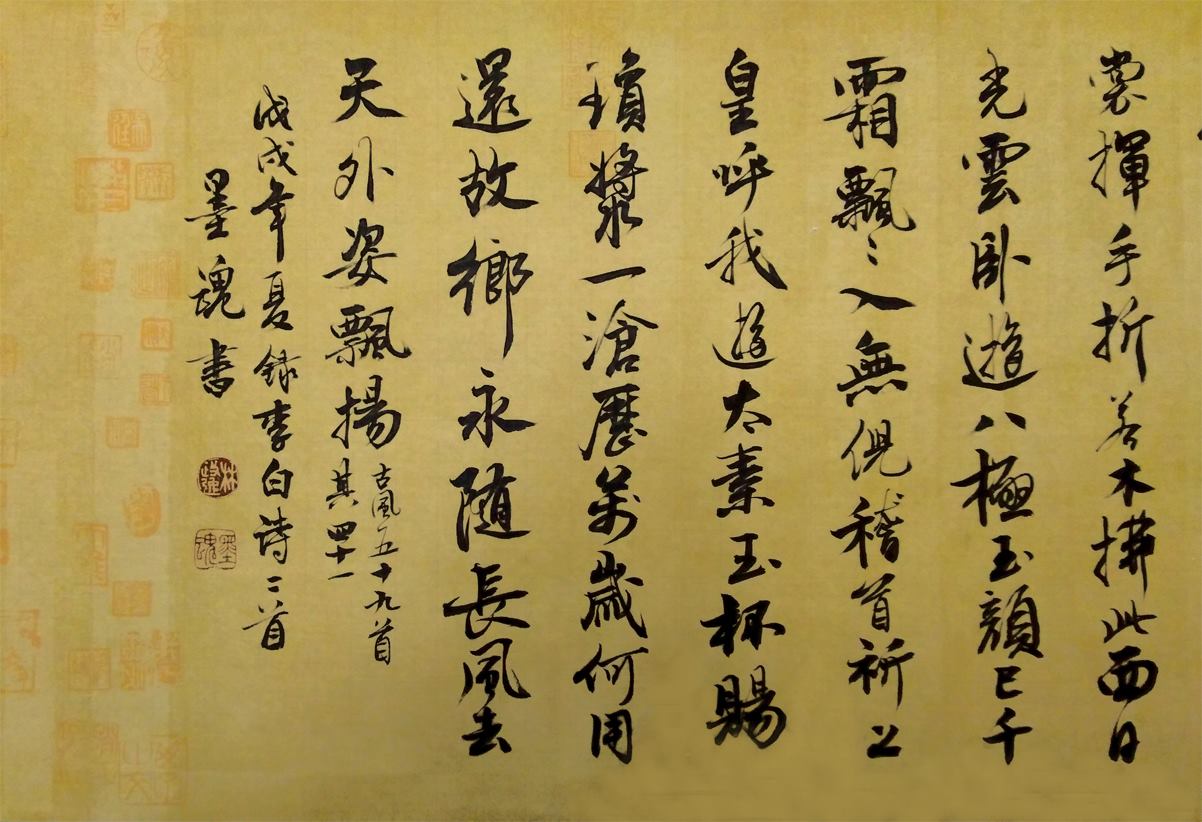 裳揮手折若木拂此西日
光雲臥遊八極玉顏已千
霜飄〻入無倪稽首祈上
皇呼我遊太素玉杯賜
瓊漿一滄歷萬歲何用
還故鄉永隨長風去
天外姿飄揚
古風五十九首
其四十一
戊戌年夏録李白诗二首
墨魂書
墨魂